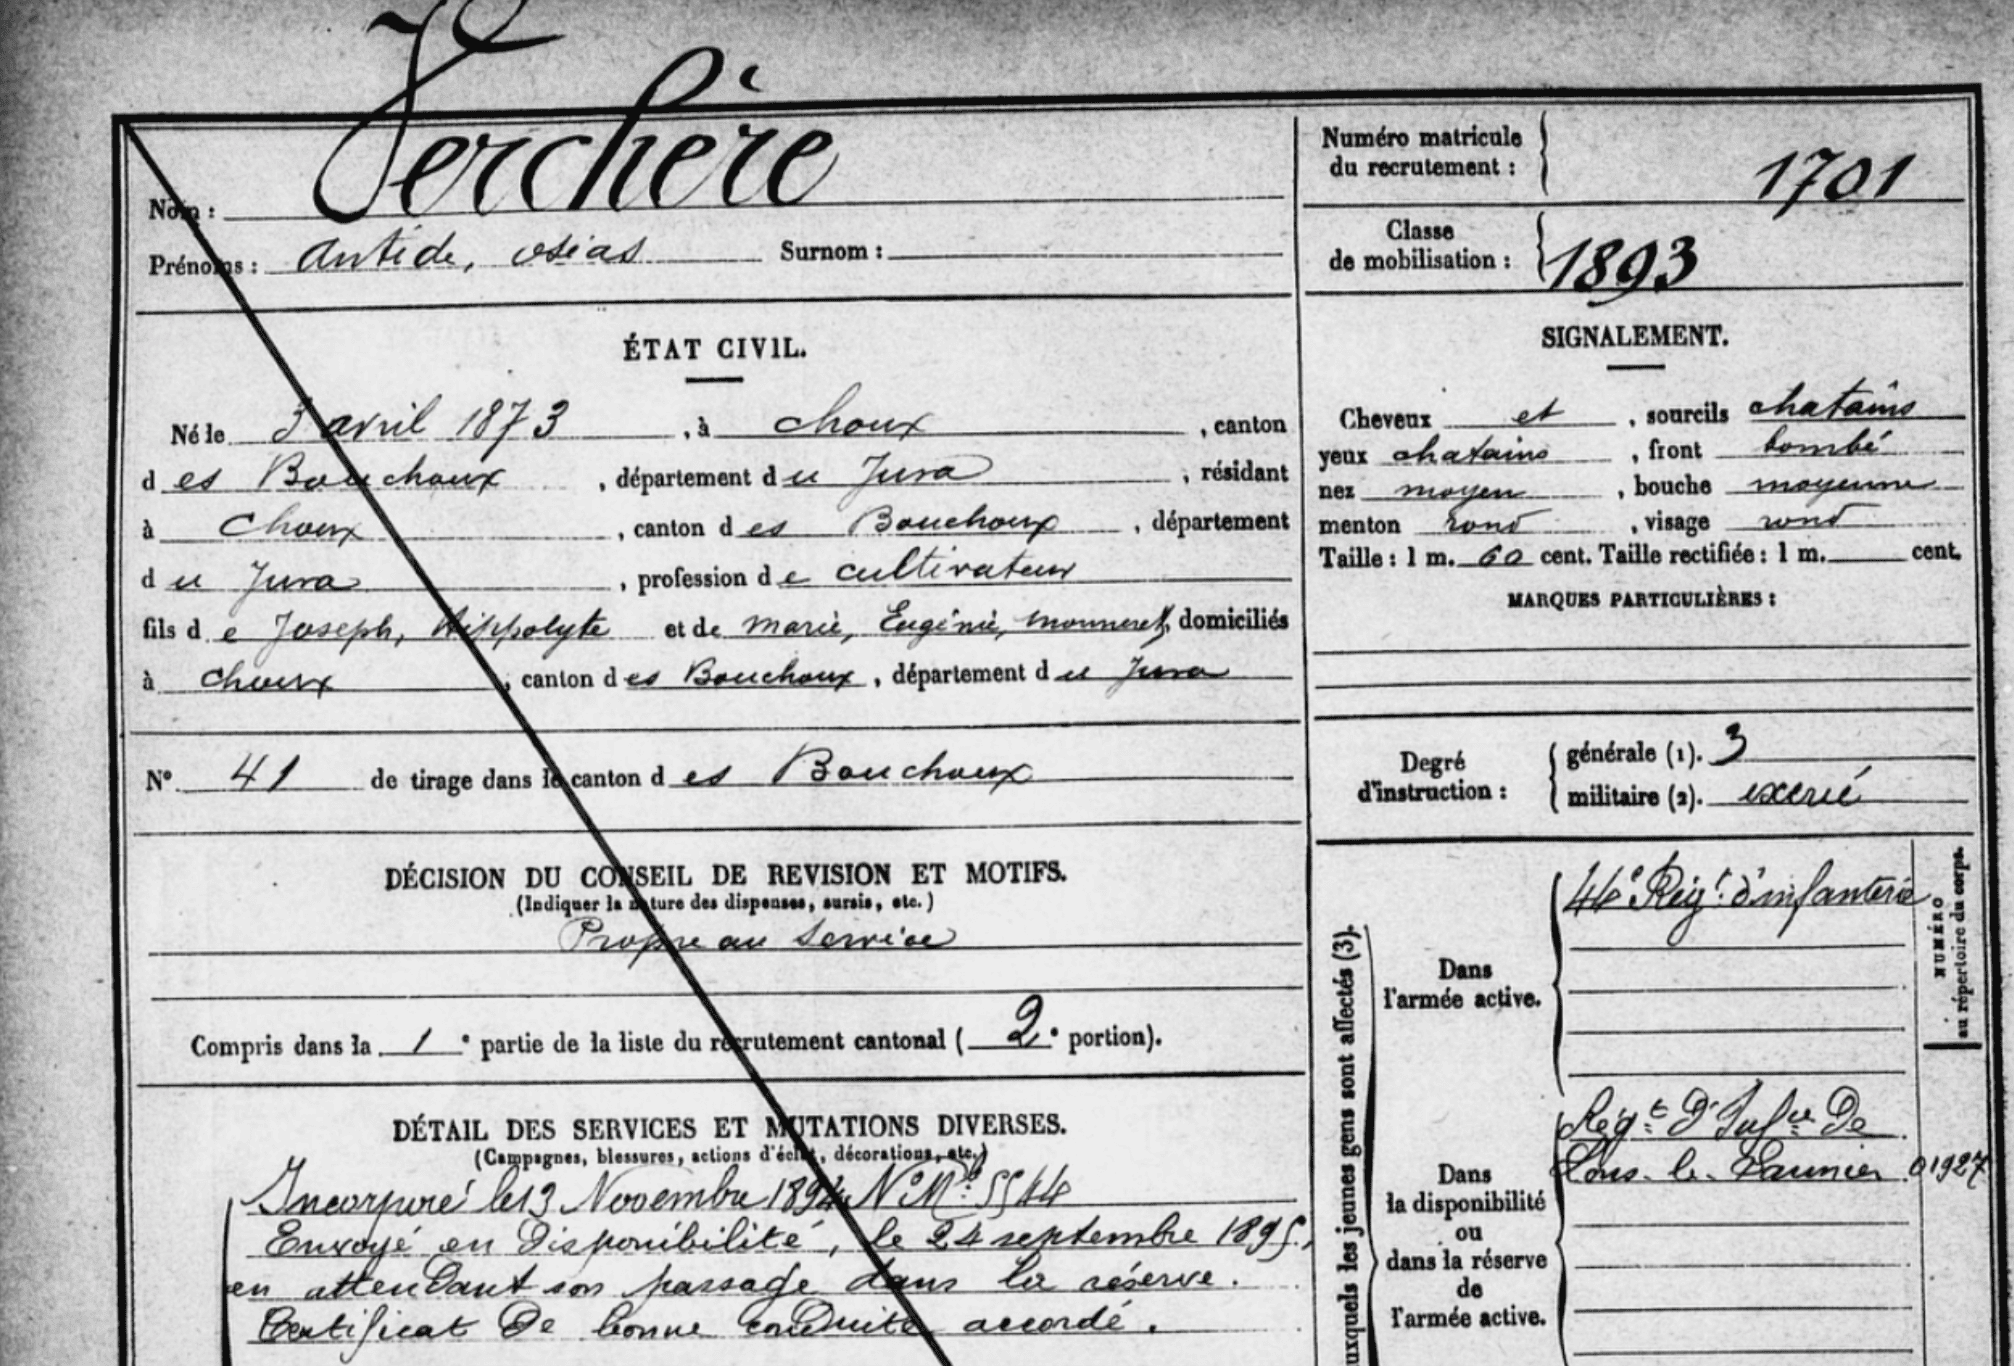 Verchère
Nom :
Prénoms : Antide, osias Surnom :
ÉTAT CIVIL.
Né le 3 avril 1873, à Choux, canton
des Bouchoux, département du Jura, résidant
à Choux, canton des Bouchoux, département
du Jura, profession de cultivateur
fils de Joseph, Hippolyte et de Marie, Eugénie, Monneret, domiciliés
à Choux, canton des Bouchoux, département du Jura
N° 41 de tirage dans le canton des Bouchoux
DÉCISION DU CONSEIL DE REVISION ET MOTIFS.
(Indiquer la nature des dispenses, sursis, etc.)
Propre au service
Compris dans la 1e partie de la liste du recrutement cantonal (2e portion).
DÉTAIL DES SERVICES ET MUTATIONS DIVERSES.
(Campagnes, blessures, actions d'éclat, décorations, etc.)
Incorporé le 13 Novembre 1894 N° Mle 5544
Envoyé en disponibilité, le 24 septembre 1895,
en attendant son passage dans la réserve.
Certificat de bonne conduite accordé.
Numéro matricule
du recrutement : 1701
Classe
de mobilisation : 1893
SIGNALEMENT.
Cheveux et, sourcils chatains
yeux chatains, front bombé
nez moyen, bouche moyenne
menton rond, visage rond
Taille : 1 m. 60 cent. Taille rectifiée : 1 m. cent.
MARQUES PARTICULIÈRES :
Degré
d'instruction :
générale (1). 3
militaire (2). exercé
uxquels les jeunes gens sont affectés (3).
Dans
l'armée active.
44e Régt d'infanterie
NUMÉRO
au répertoire du corps.
Dans
la disponibilité
ou
dans la réserve
de
l'armée active.
Régt d'Infie De
Lons-le-Saunier 01927